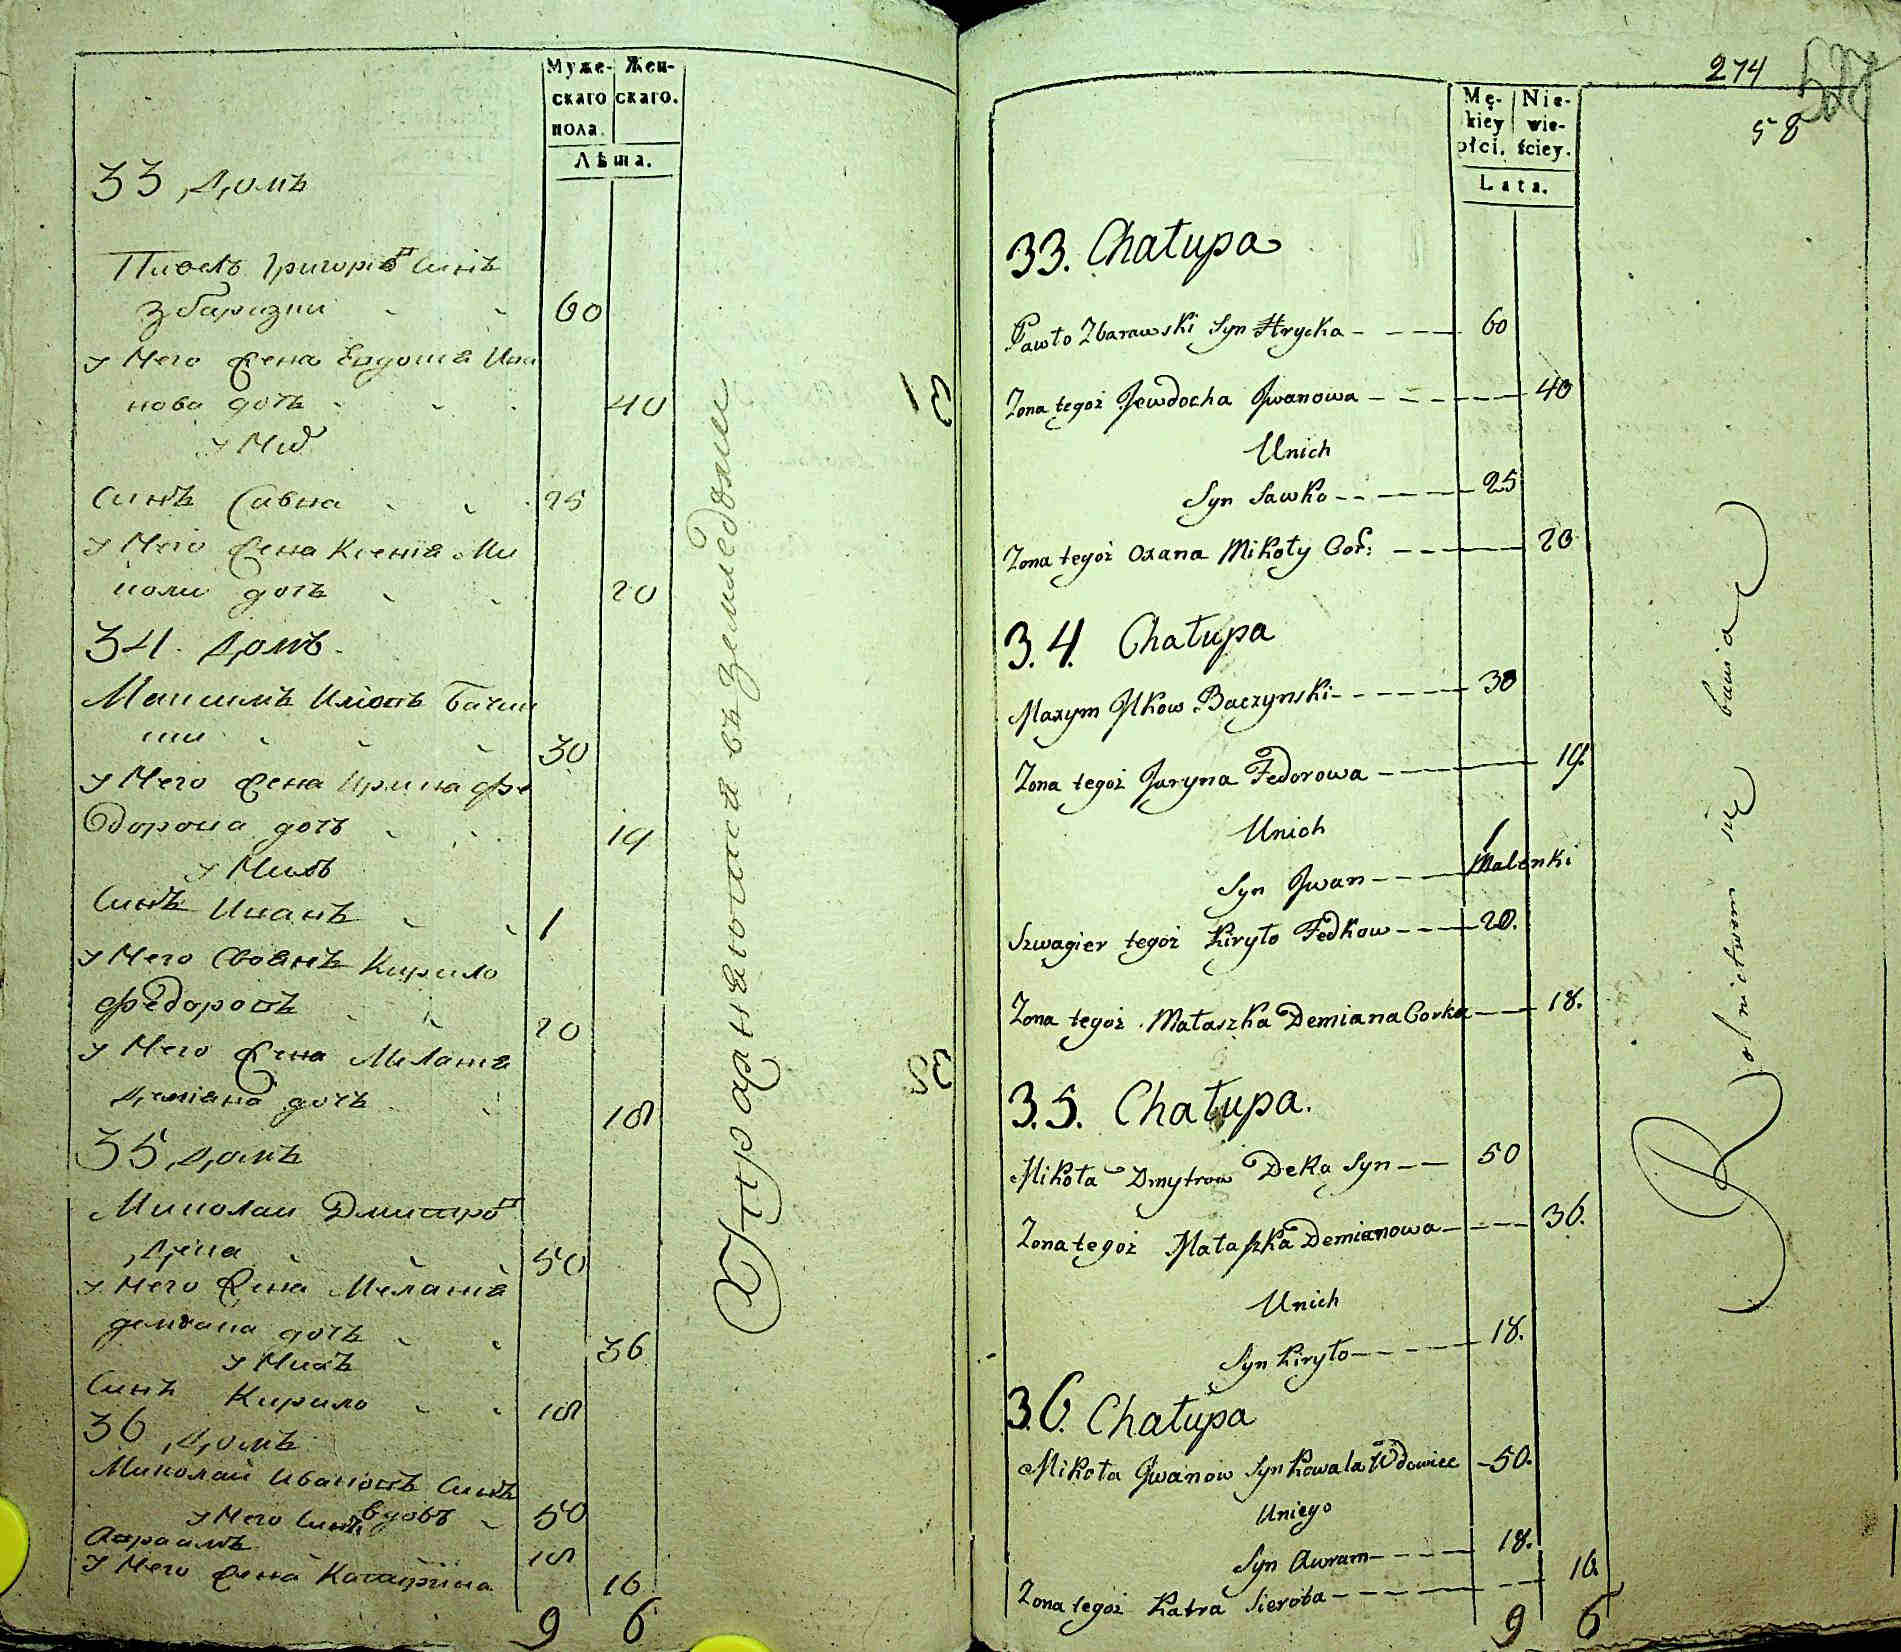 Муже- Жен-
скаго скаго.
пола.
Лѣта.
33 Домъ
Павелъ Григоріѡвъ Синъ
Збаразки 60
У Него Жена Евдошиа Ива
нова дочъ 40
У Них
Синъ Савка 25
У Него Жена Ксенія Ми
коли дочъ 20
34. Домъ.
Максимъ Илковъ Бачин
ски 30
У Него Жена Ирина Фе
дорова дочъ 19
У Нихъ
Синъ Иванъ 1
У Него Своякъ Кирило
Федоровъ 20
У Него Жена Меланія
Деміана дочъ 18
35 Домъ
Миколаи Дмитров
Дека 50
У Него Жена Меланія
демяна дочъ 36
У Нихъ
Синъ Кирило 18
36 Домъ
Миколай Ивановъ Синъ
вдовъ 50
У Него Синъ
Авраамъ 18
У Него Жена Катарина 16
9 6
Упражняются въ земледелии
31
38
274
58
Mę- Nie-
kiey wie-
płci. ściey.
Lata.
33. Chałupa
Pawło Zbarawski Syn Hrycka 60
Zona tegoż Jewdocha Jwanowa 40
Unich
Syn Sawka 25
Zona tegoż Oxana Mikoły Cor: 20
3.4. Chałupa
Maxym Jlkow Baczynski 30
Zona tegoż Jaryna Fedorowa 19.
Unich
1
Syn Jwan Malenki
Szwagier tegoż Kiryło Fedkow 20.
Zona tegoż Małaszka Demiana Corka 18.
3.5. Chałupa.
Mikoła Dmytrow Deka Syn 50
Zona tegoż Małaszka Demianowa 36.
Unich
Syn Kiryło 18.
3.6. Chałupa
Mikoła Jwanow Syn Kowala Wdowiec 50.
Uniego
Syn Awram 18.
Zona tegoż Katra Sierota 16.
9 6
Rolnictwem się bawia